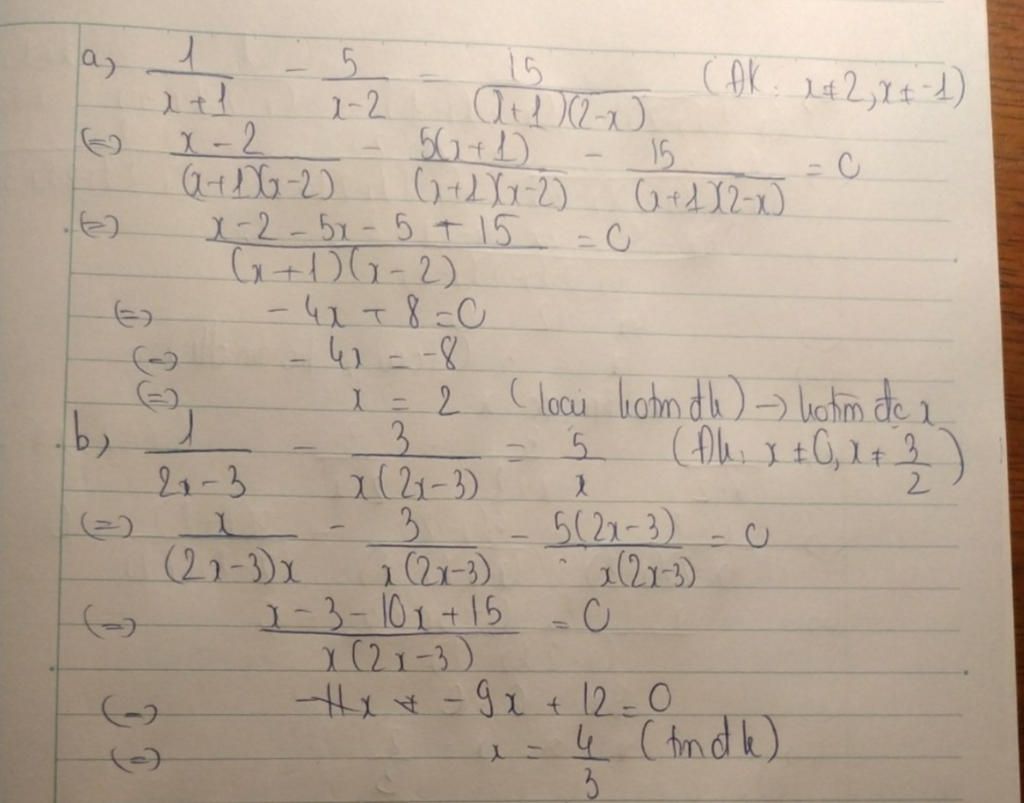 a, 1/(x+1) - 5/(x-2) = 15/((x+1)(2-x)) (ĐK: x≠2, x≠-1)
(=) (x-2)/((x+1)(x-2)) - 5(x+1)/((x+1)(x-2)) - 15/((x+1)(2-x)) = 0
(=) (x-2-5x-5+15)/((x+1)(x-2)) = 0
(=) -4x + 8 = 0
(=) -4x = -8
(=) x = 2 (loại kotmđk) → kotìm đc x
b, 1/(2x-3) - 3/(x(2x-3)) = 5/x (Đk: x≠0, x≠3/2)
(=) x/((2x-3)x) - 3/(x(2x-3)) - 5(2x-3)/(x(2x-3)) = 0
(=) (x-3-10x+15)/(x(2x-3)) = 0
(=) -9x + 12 = 0
(=) x = 4/3 (tmđk)